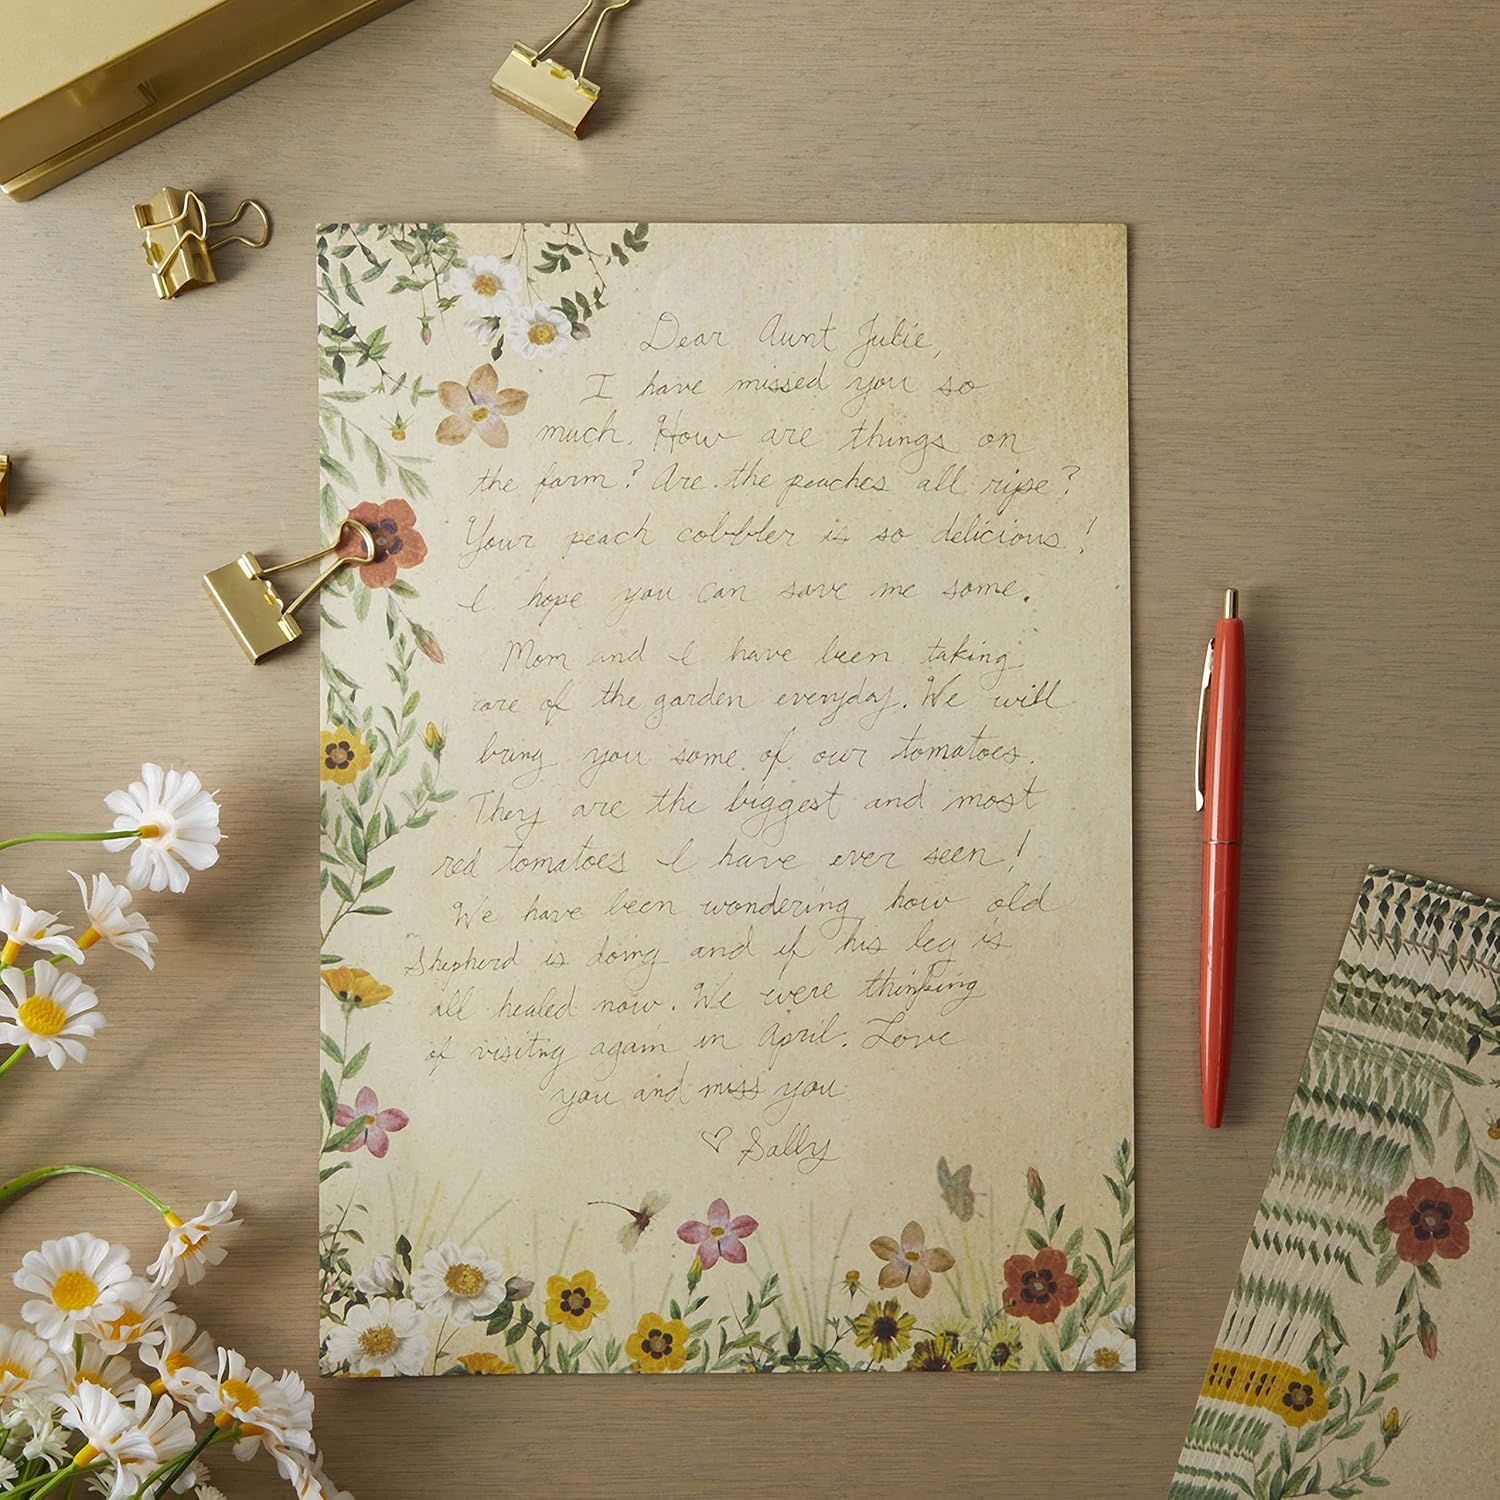 Dear Aunt Julie,
I have missed you so
much. How are things on
the farm? Are the peaches all ripe?
Your peach cobbler is so delicious!
I hope you can save me some.
Mom and I have been taking
care of the garden everyday. We will
bring you some of our tomatoes.
They are the biggest and most
red tomatoes I have ever seen!
We have been wondering how old
Shepherd is doing and if his leg is
all healed now. We were thinking
of visiting again in April. Love
you and miss you
♡ Sally